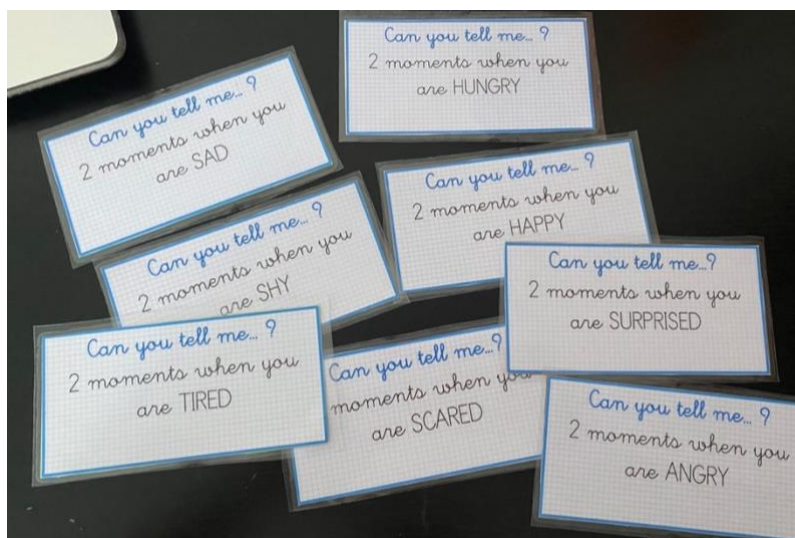 Can you tell me... ?
2 moments when you
are HUNGRY
Can you tell me... ?
2 moments when you
are SAD
Can you tell me... ?
2 moments when you
are HAPPY
Can you tell me... ?
2 moments when you
are SHY
Can you tell me...?
2 moments when you
are SURPRISED
Can you tell me... ?
2 moments when you
are TIRED
Can you tell me...?
moments when you
are SCARED
Can you tell me... ?
2 moments when you
are ANGRY